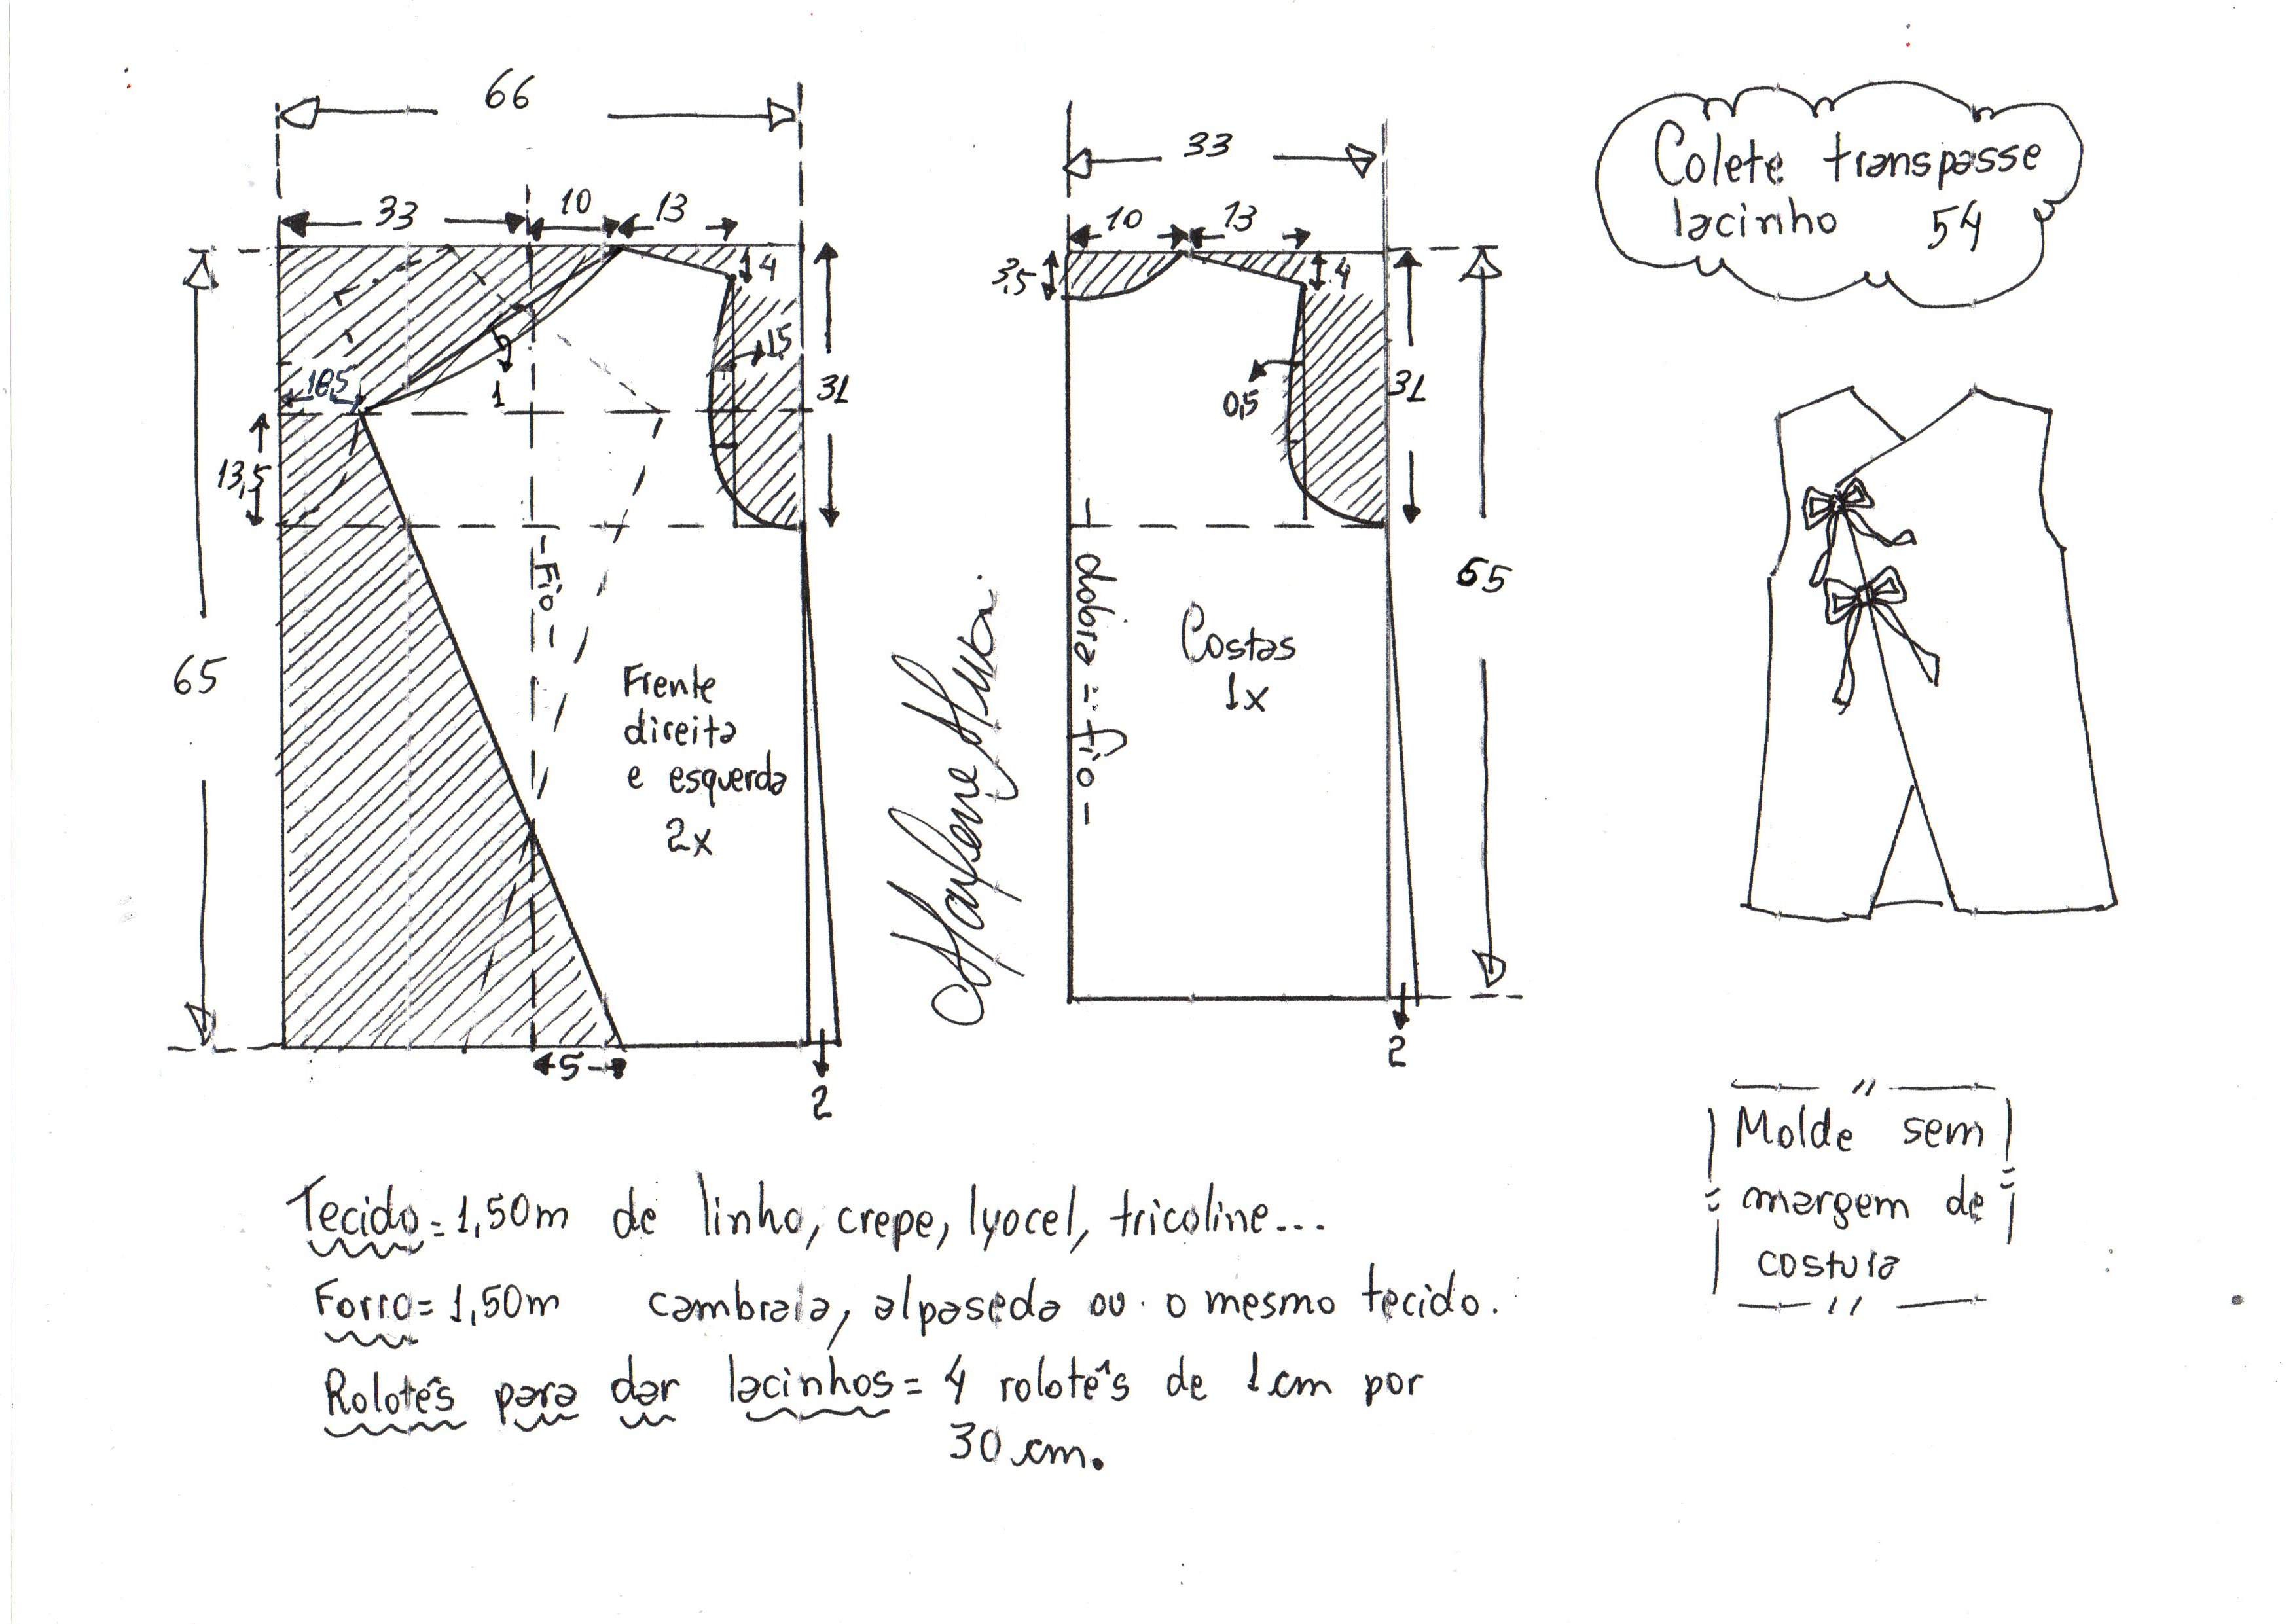 66
33 10 13
4
1,5
16,5
1
31
13,5
- Fio -
65
Frente
direita
e esquerda
2x
5
2
Marlene Mukai
33
10 13
3,5
4
0,5
31
- dobra = fio -
Costas
1x
65
2
Colete transpasse
lacinho 54
Molde sem
margem de
costura
Tecido = 1,50m de linho, crepe, lyocel, tricoline...
Forro = 1,50m cambraia, alpaseda ou o mesmo tecido.
Rolotês para dar lacinhos = 4 rolotês de 1cm por
30 cm.